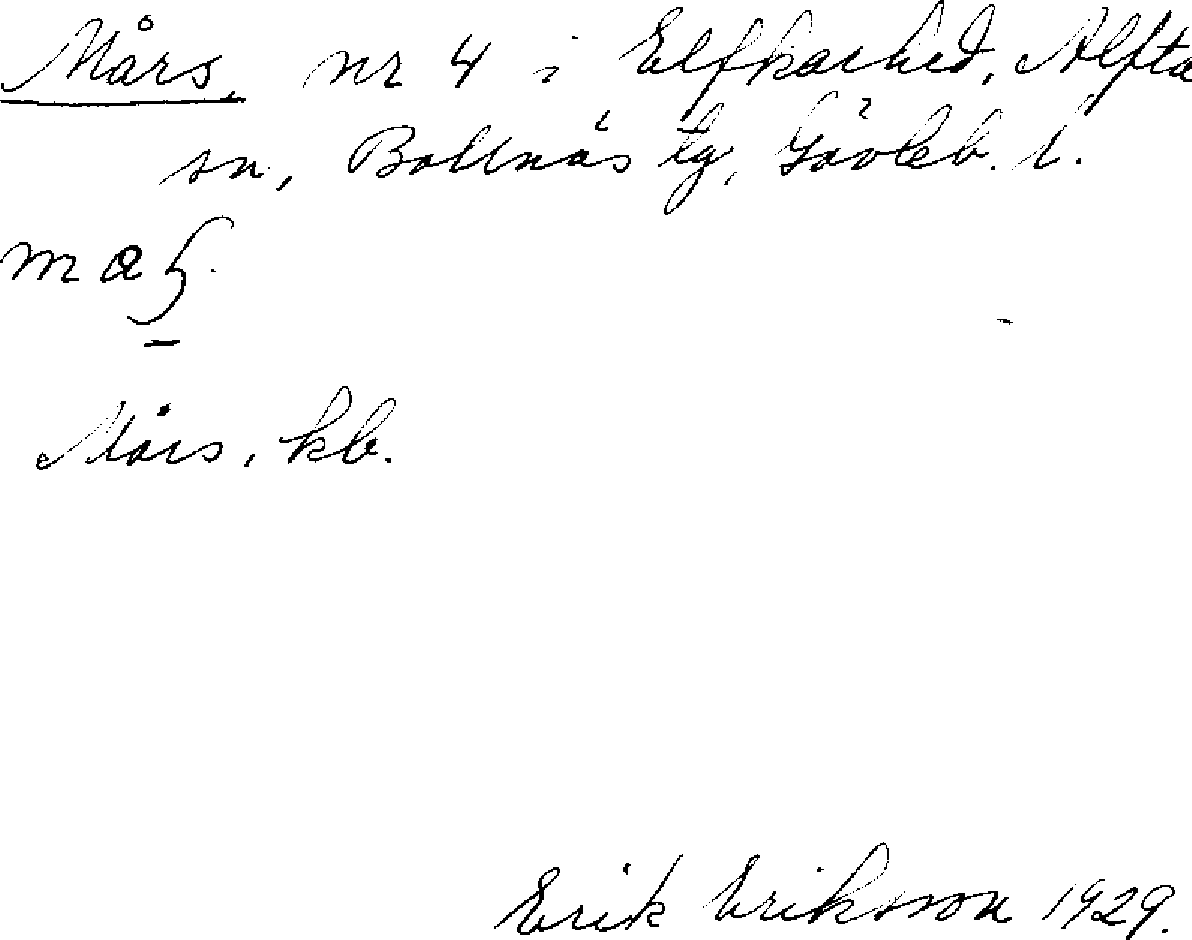 Mårs, nr 4 i Elfkarhed, Alfta
sn, Bollnäs tg, Gävleb. l.
Mårs, kb.
Erik Eriksson 1929.